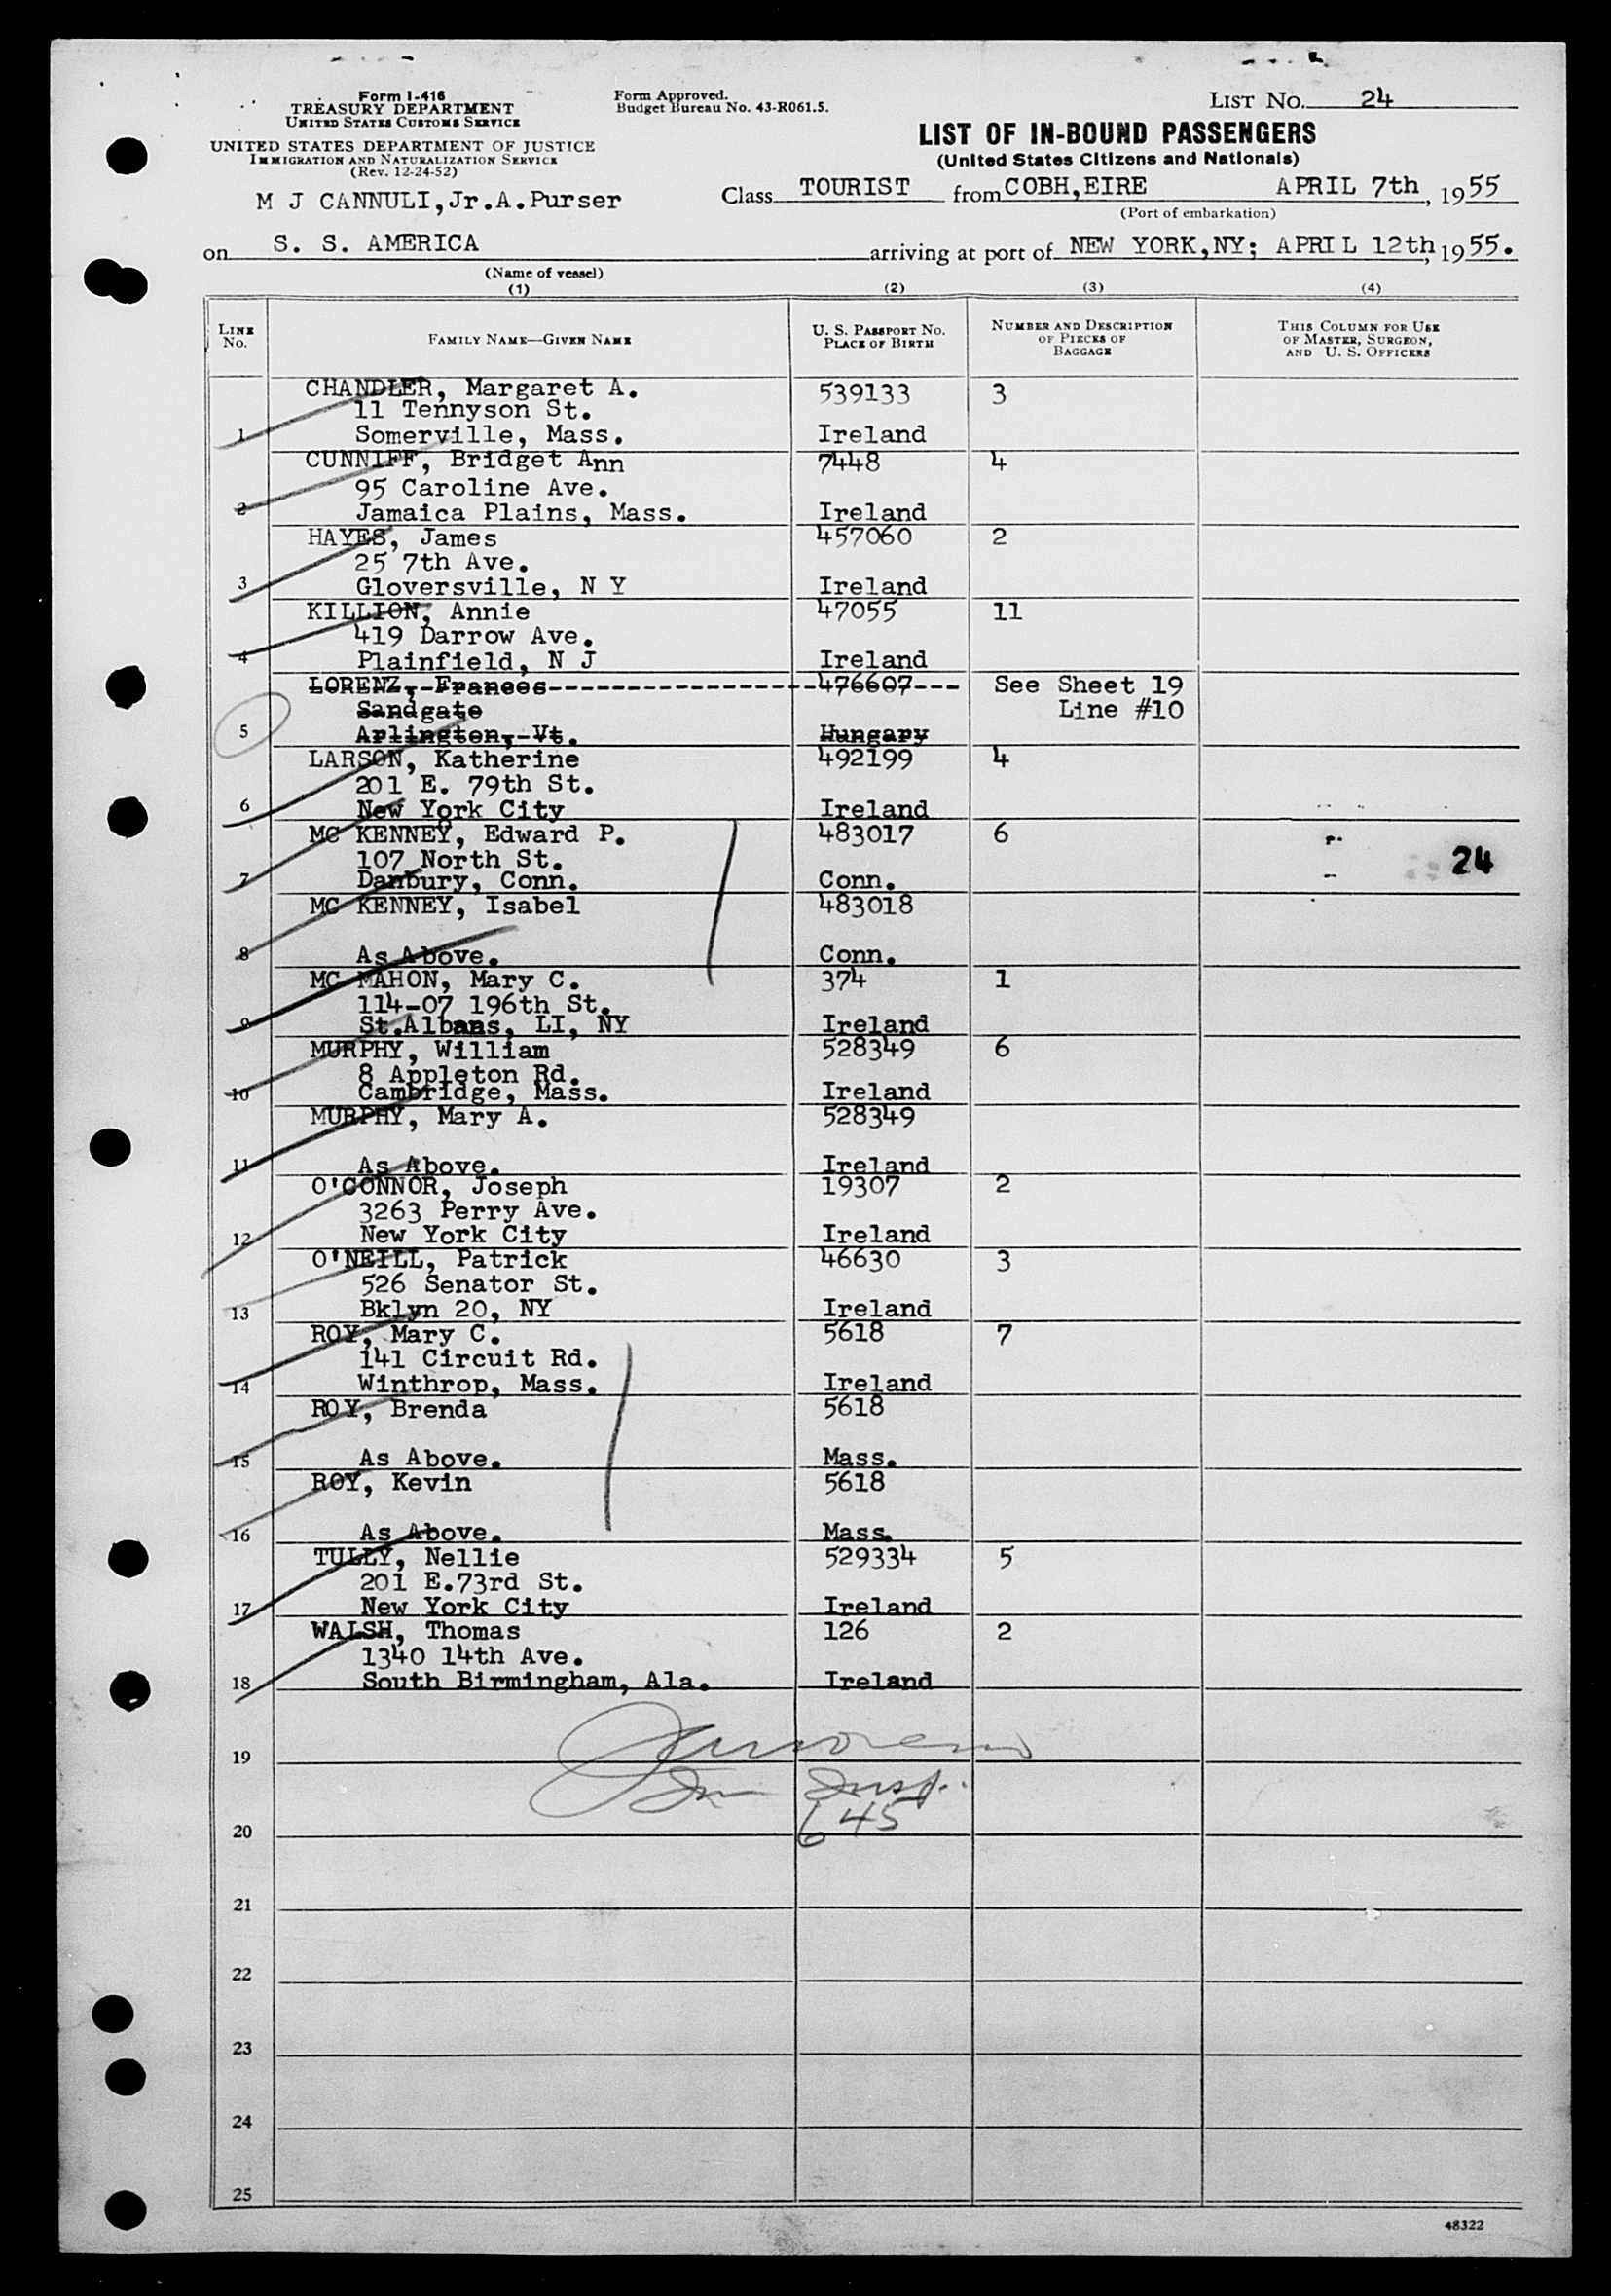 Form I-416
TREASURY DEPARTMENT
UNITED STATES CUSTOMS SERVICE
UNITED STATES DEPARTMENT OF JUSTICE
IMMIGRATION AND NATURALIZATION SERVICE
(Rev. 12-24-52)
M J CANNULI,Jr.A.Purser
Form Approved.
Budget Bureau No. 43-R061.5.
LIST NO. 24
LIST OF IN-BOUND PASSENGERS
(United States Citizens and Nationals)
Class TOURIST from COBH,EIRE APRIL 7th, 1955
(Port of embarkation)
on S. S. AMERICA arriving at port of NEW YORK,NY; APRIL 12th, 1955.
(Name of vessel)
(1) (2) (3) (4)
LINE NO. FAMILY NAME—GIVEN NAME U. S. PASSPORT NO. PLACE OF BIRTH NUMBER AND DESCRIPTION OF PIECES OF BAGGAGE THIS COLUMN FOR USE OF MASTER, SURGEON, AND U. S. OFFICERS
CHANDLER, Margaret A. 539133 3
11 Tennyson St.
1 Somerville, Mass. Ireland
CUNNIFF, Bridget Ann 7448 4
95 Caroline Ave.
2 Jamaica Plains, Mass. Ireland
HAYES, James 457060 2
25 7th Ave.
3 Gloversville, N Y Ireland
KILLION, Annie 47055 11
419 Darrow Ave.
4 Plainfield, N J Ireland
LORENZ, Frances 476607 See Sheet 19
Sandgate Line #10
5 Arlington, Vt. Hungary
LARSON, Katherine 492199 4
201 E. 79th St.
6 New York City Ireland
MC KENNEY, Edward P. 483017 6
107 North St. 24
7 Danbury, Conn. Conn.
MC KENNEY, Isabel 483018
8 As Above. Conn.
MC MAHON, Mary C. 374 1
114-07 196th St.
9 St.Albans, LI, NY Ireland
MURPHY, William 528349 6
8 Appleton Rd.
10 Cambridge, Mass. Ireland
MURPHY, Mary A. 528349
11 As Above. Ireland
O'CONNOR, Joseph 19307 2
3263 Perry Ave.
12 New York City Ireland
O'NEILL, Patrick 46630 3
526 Senator St.
13 Bklyn 20, NY Ireland
ROY, Mary C. 5618 7
141 Circuit Rd.
14 Winthrop, Mass. Ireland
ROY, Brenda 5618
15 As Above. Mass.
ROY, Kevin 5618
16 As Above. Mass.
TULLY, Nellie 529334 5
201 E.73rd St.
17 New York City Ireland
WALSH, Thomas 126 2
1340 14th Ave.
18 South Birmingham, Ala. Ireland
19
Im Insp.
645
20
21
22
23
24
25
48322